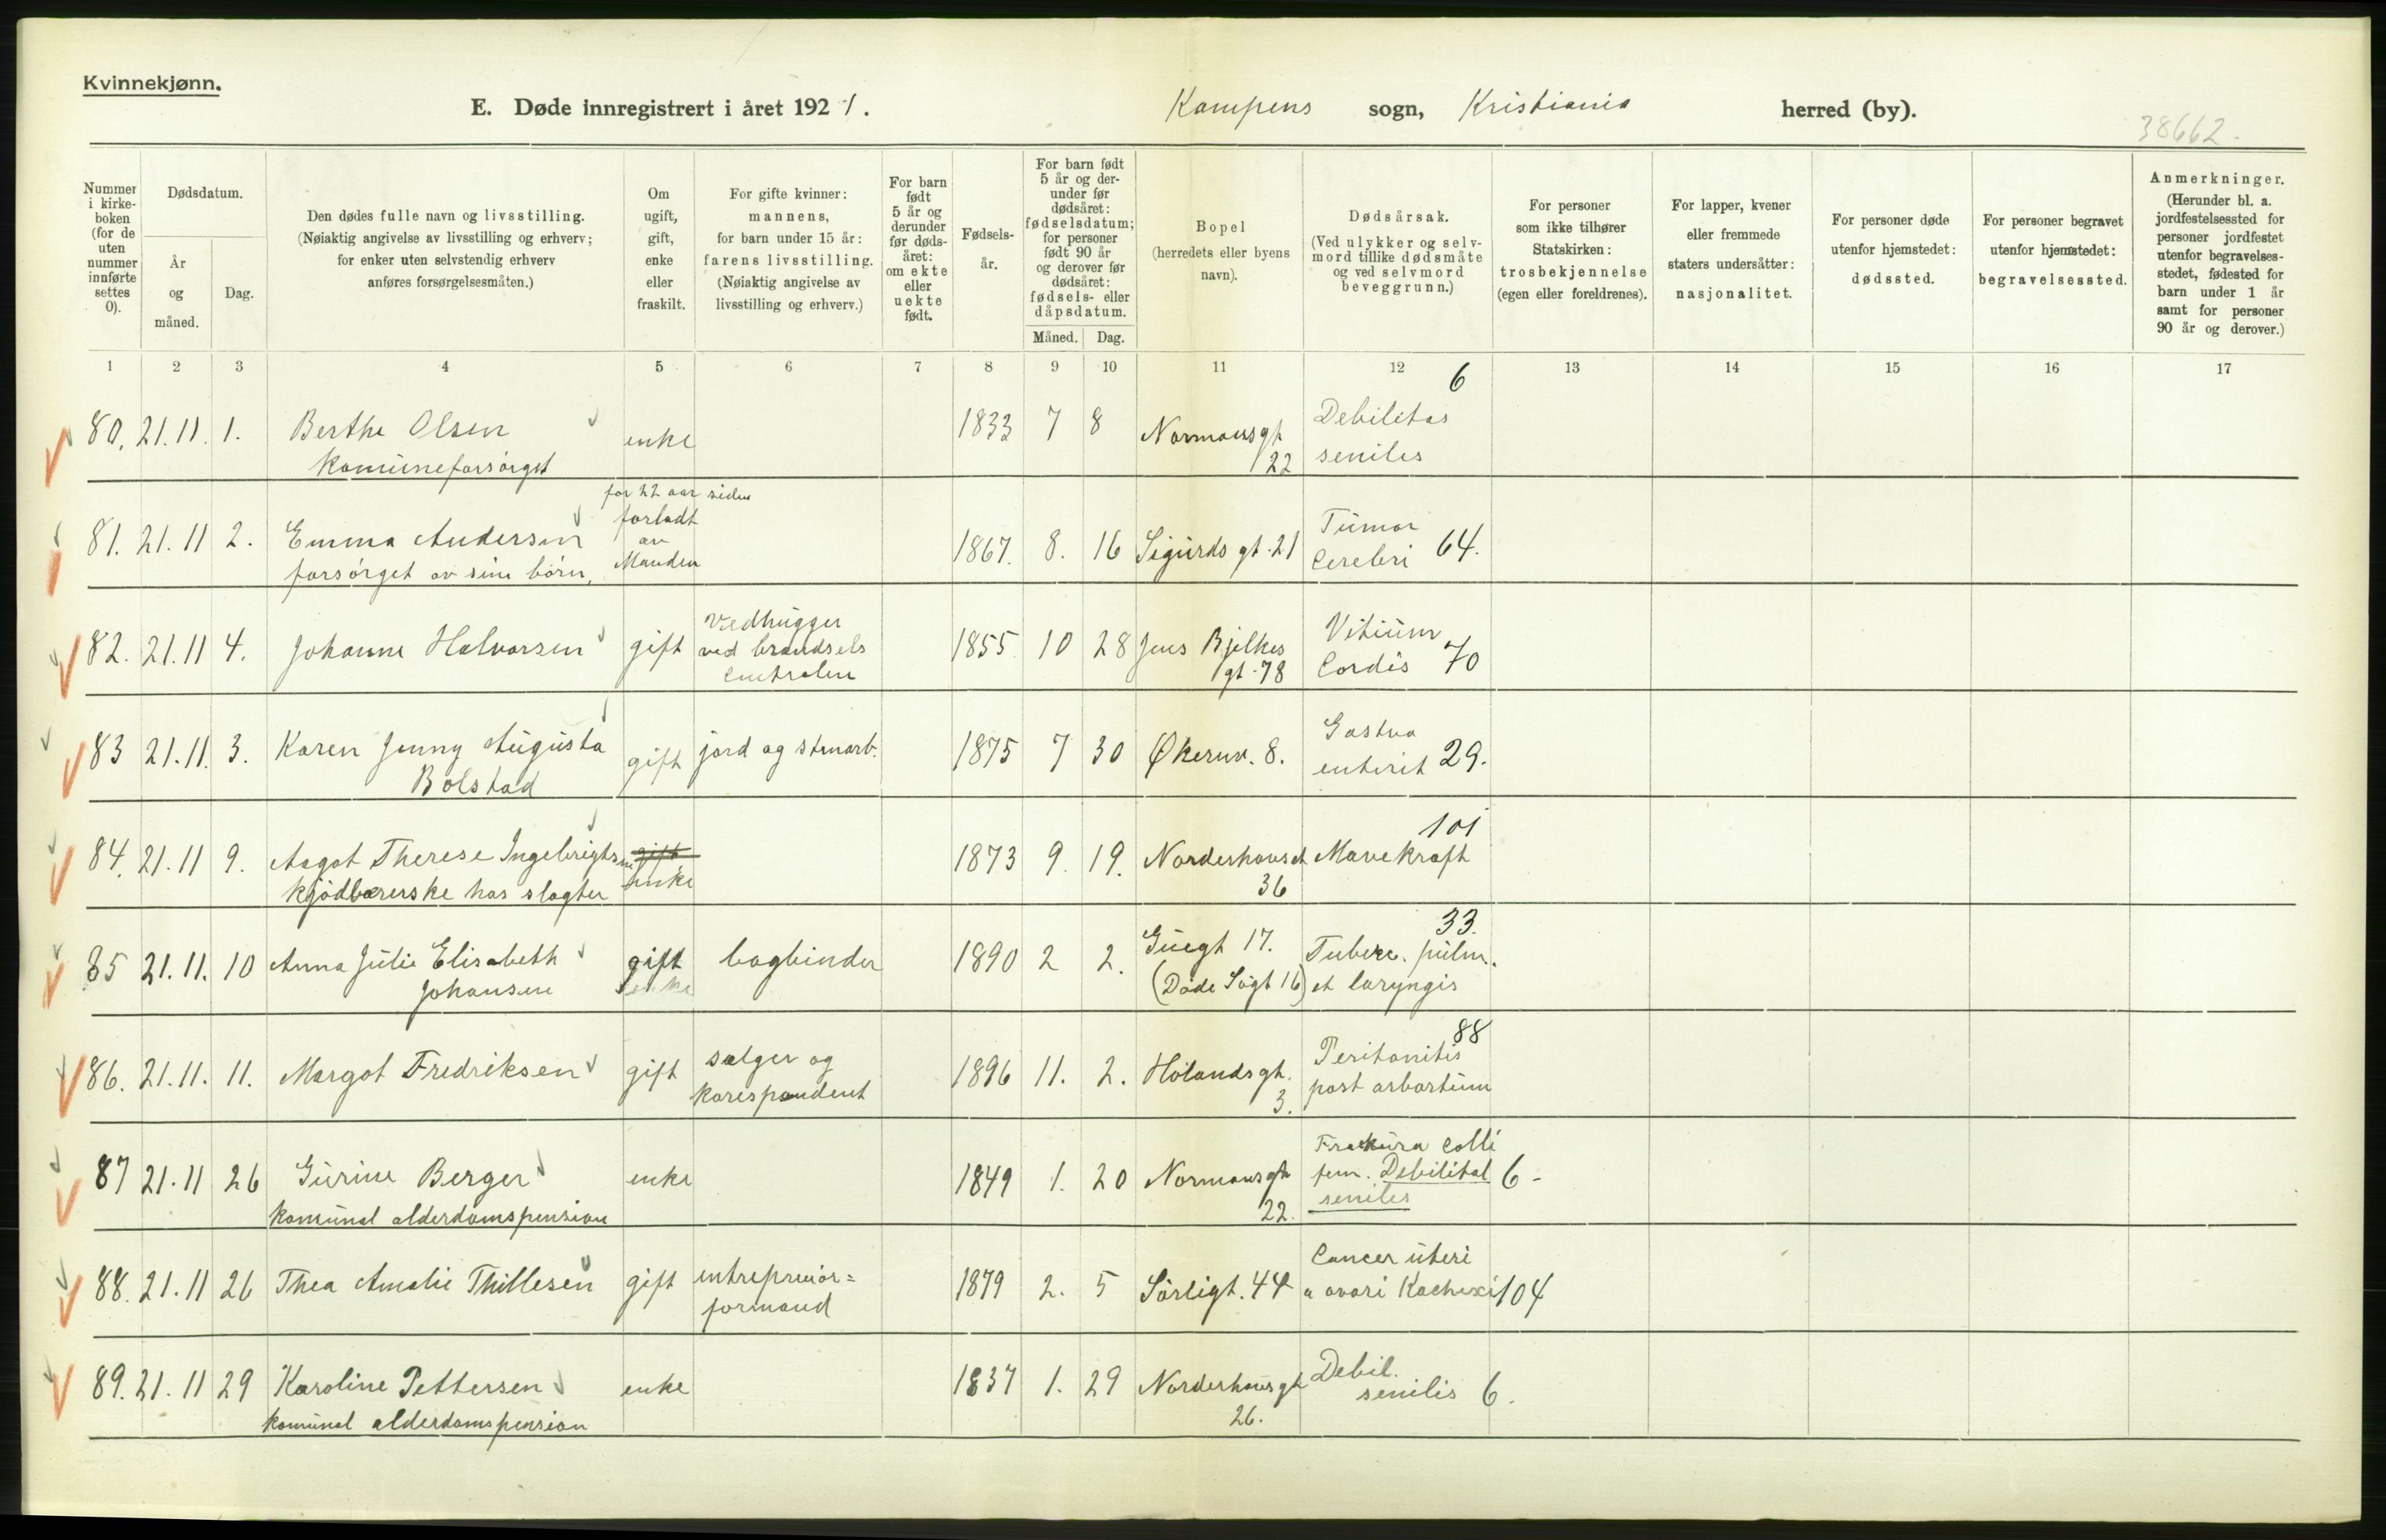 Kvinnekjønn.
E. Døde innregistrert i året 1921. Kampens sogn, Kristiania herred (by).
38662.
Nummer i kirkeboken (for de uten nummer innførte settes 0).
Dødsdatum.
År og måned.
Dag.
Den dødes fulle navn og livsstilling.
(Nøiaktig angivelse av livsstilling og erhverv;
for enker uten selvstendig erhverv
anføres forsørgelsesmåten.)
Om ugift, gift, enke eller fraskilt.
For gifte kvinner: mannens,
for barn under 15 år:
farens livsstilling.
(Nøiaktig angivelse av
livsstilling og erhverv.)
For barn født 5 år og derunder før dødsåret: om ekte eller uekte født.
Fødselsår.
For barn født 5 år og derunder før dødsåret: fødselsdatum; for personer født 90 år og derover før dødsåret: fødsels- eller dåpsdatum.
Måned. Dag.
Bopel
(herredets eller byens
navn).
Dødsårsak.
(Ved ulykker og selvmord tillike dødsmåte
og ved selvmord
beveggrunn.)
For personer
som ikke tilhører
Statskirken:
trosbekjennelse
(egen eller foreldrenes).
For lapper, kvener
eller fremmede
staters undersåtter:
nasjonalitet.
For personer døde
utenfor hjemstedet:
dødssted.
For personer begravet
utenfor hjemstedet:
begravelsessted.
Anmerkninger.
(Herunder bl. a.
jordfestelsessted for
personer jordfestet
utenfor begravelsesstedet, fødested for
barn under 1 år
samt for personer
90 år og derover.)
1 2 3 4 5 6 7 8 9 10 11 12 13 14 15 16 17
80. 21.11. 1. Berthe Olsen enke 1833 7 8 Normansgt 22 Debilitas seniles 6
Komuneforsørget
81. 21.11 2. Emma Andersen for 22 aar siden forladt av Manden 1867. 8. 16 Sigurds gt. 21 Tumor Cerebri 64.
forsørget av sine børn.
82. 21.11 4. Johanne Halvorsen gift Vedhugger ved brændsels centralen 1855 10 28 Jens Bjelkes gt. 78 Vitium Cordis 70
83 21.11. 3. Karen Jenny Augusta Bolstad gift jord og stenarb. 1875 7 30 Økernv. 8. Gastro enterit 29.
84. 21.11 9. Aagot Therese Ingebrigtsen gift enke 1873 9. 19. Norderhovsgt 36 Mavekræft 101
kjødbærerske hos slagter
85 21.11. 10 Anna Julie Elisabeth Johansen gift enke bogbinder 1890 2 2. Gøegt 17. (Døde Søgt 16) Tuberc. pulm. et laryngis 33.
86. 21.11. 11. Margot Fredriksen gift sælger og korespondent 1896 11. 2. Hølandsgt. 3. Peritonitis post arbortum 88
87 21.11 26 Gurine Berger enke 1849 1. 20 Normansgt 22. Fraktura colli fem. Debilitat seniles 6-
komunal alderdomspension
88. 21.11 26 Thea Amalie Thillesen gift entreprenør=formand 1879 2. 5 Sørligt. 44 Cancer uteri a ovari Kachexi 104
89. 21.11 29 Karoline Pettersen enke 1837 1. 29 Norderhovsgt 26. Debil. senilis 6.
komunal alderdomspension